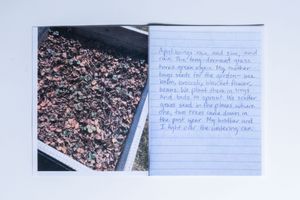 April brings rain, and sun, and
rain. The long-dormant grass
turns green again. My mother
buys seeds for the garden - bee
balm, broccoli, blanket flower,
beans. We plant them in trays
and wait to sprout. We scatter
grass seed in the places where
the two trees came down in
the past year. My brother and
I fight over the watering can.